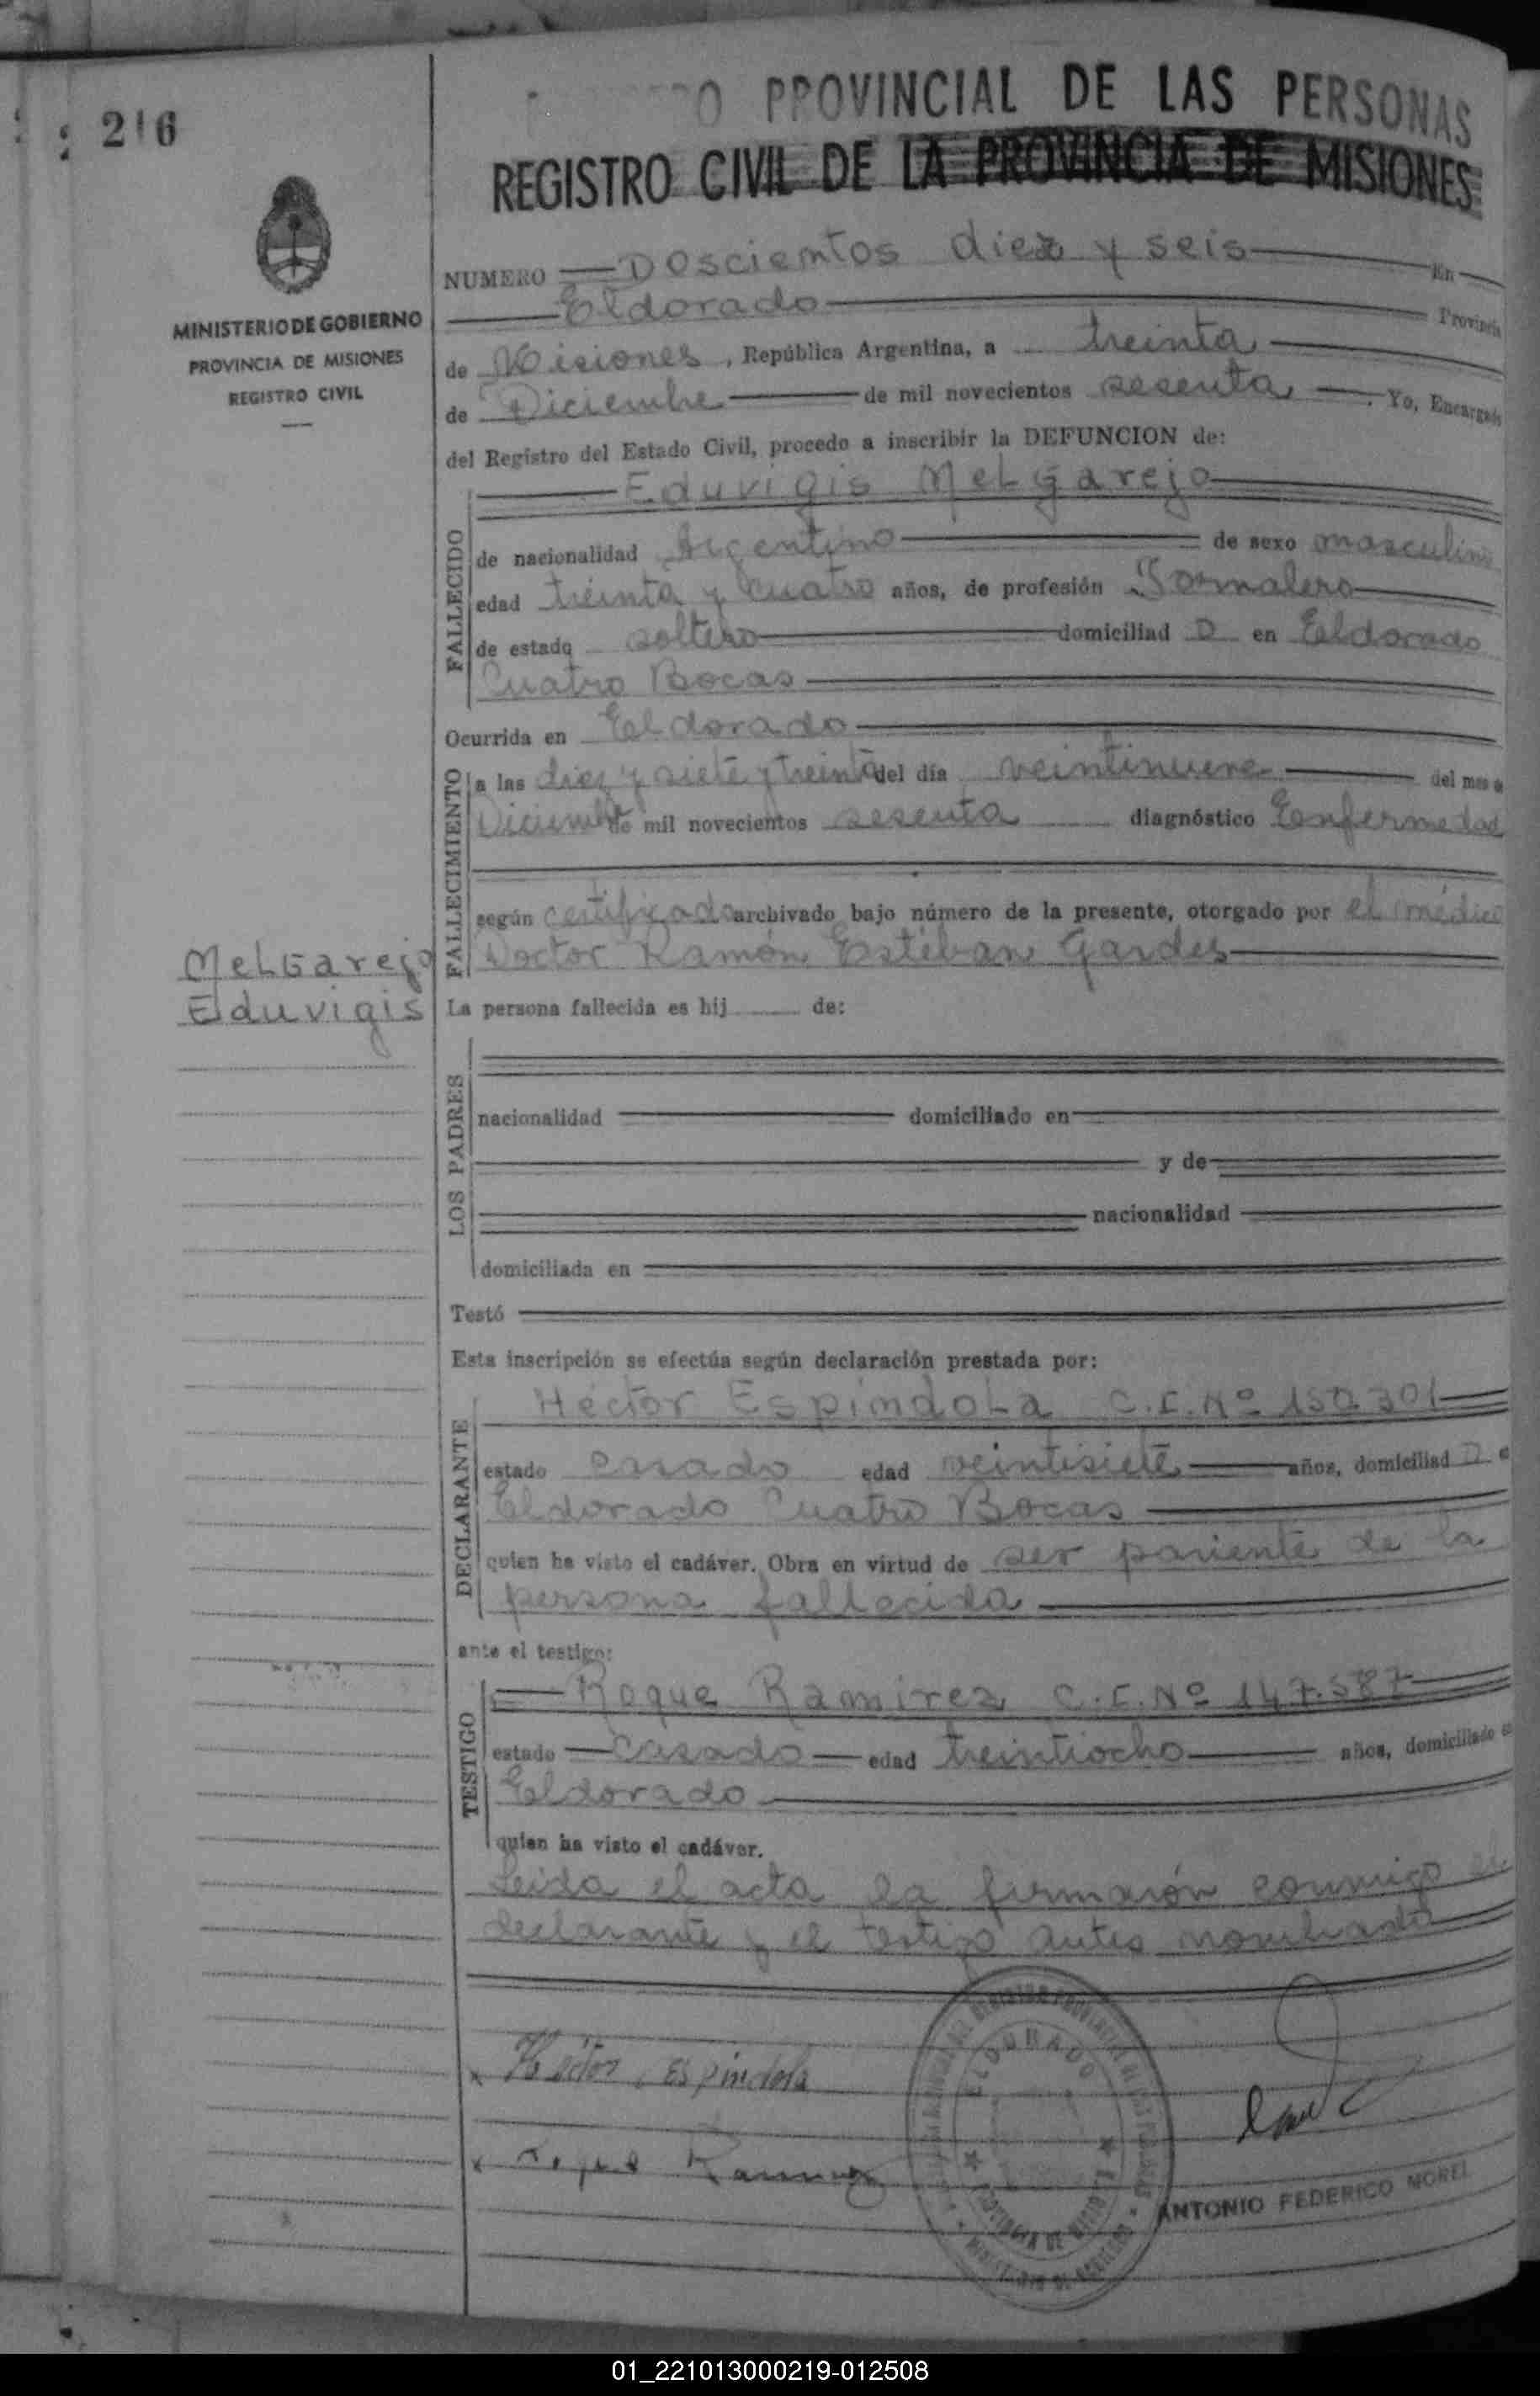 216
PROVINCIAL DE LAS PERSONAS
REGISTRO CIVIL DE LA PROVINCIA DE MISIONES
MINISTERIO DE GOBIERNO
PROVINCIA DE MISIONES
REGISTRO CIVIL
NUMERO Doscientos diez y seis En
Eldorado Provincia
de Misiones, República Argentina, a treinta
de Diciembre de mil novecientos sesenta. Yo, Encargado
del Registro del Estado Civil, procedo a inscribir la DEFUNCION de:
Eduvigis Melgarejo
FALLECIDO
de nacionalidad Argentino de sexo masculino
edad treinta y cuatro años, de profesión Jornalero
de estado soltero domiciliad o en Eldorado
Cuatro Bocas
Ocurrida en Eldorado
FALLECIMIENTO
a las diez y siete y treinta del día veintinueve del mes de
Diciembre de mil novecientos sesenta diagnóstico Enfermedad
según certificado archivado bajo número de la presente, otorgado por el médico
Doctor Ramón Estéban Gardes
Melgarejo
Eduvigis
La persona fallecida es hij de:
LOS PADRES
nacionalidad domiciliado en
y de
nacionalidad
domiciliada en
Testó
Esta inscripción se efectúa según declaración prestada por:
Héctor Espíndola C.I. Nº 150.301
DECLARANTE
estado casado edad veintisiete años, domiciliad o e
Eldorado Cuatro Bocas
quien ha visto el cadáver. Obra en virtud de ser pariente de la
persona fallecida
ante el testigo:
Roque Ramirez C.I. Nº 147.587
TESTIGO
estado casado edad treintiocho años, domiciliado en
Eldorado
quien ha visto el cadáver.
Leida el acta la firmarón conmigo el
declarante y el testigo antes nombrado
Héctor Espindola
Roque Ramirez
ELDORADO
PROVINCIA DE MISIONES
ANTONIO FEDERICO MOREL
01_221013000219-012508